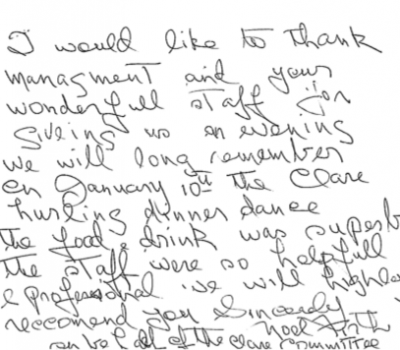 I would like to thank
managment and your
wonderfull staff for
giveing us an evening
we will long remember
on January 10th The Clare
hurling dinner dance
The food & drink was superb
The staff were so helpfull
& professional we will highly
reccomend you Sincerely
on behalf of the clare committee